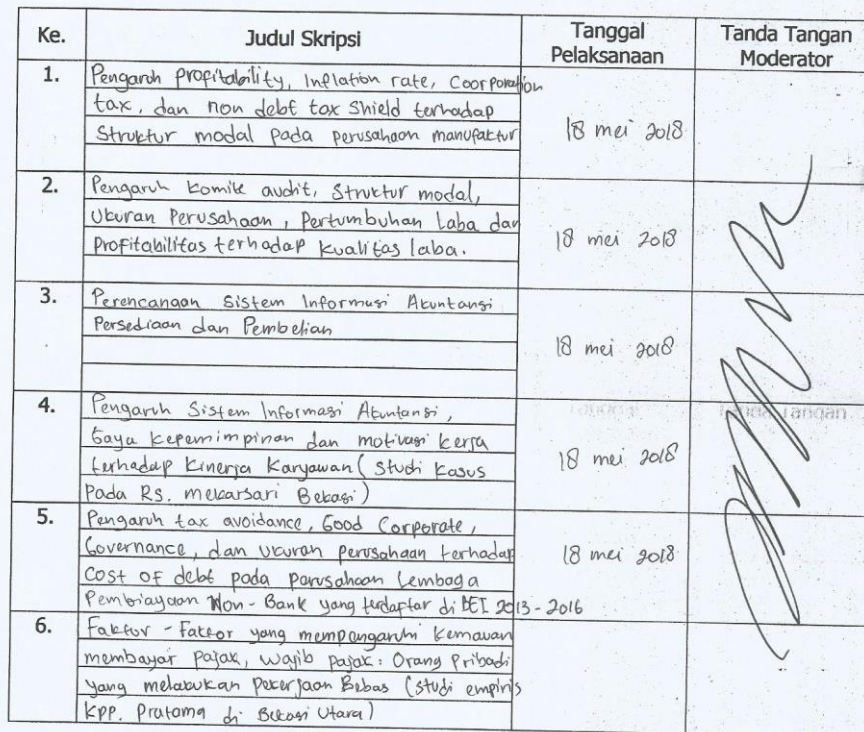 Ke. Judul Skripsi Tanggal Pelaksanaan Tanda Tangan Moderator
1. Pengaruh profitability, Inflation rate, Coorporation
tax, dan non debt tax shield terhadap
Struktur modal pada perusahaan manufaktur
18 mei 2018
2. Pengaruh komite audit, Struktur modal,
Ukuran Perusahaan, Pertumbuhan Laba dan
Profitabilitas terhadap kualitas laba.
18 mei 2018
3. Perencanaan Sistem Informasi Akuntansi
Persediaan dan Pembelian
18 mei 2018
4. Pengaruh Sistem Informasi Akuntansi,
Gaya kepemimpinan dan motivasi kerja
terhadap Kinerja Karyawan (Studi Kasus
Pada Rs. mekarsari Bekasi)
18 mei 2018
5. Pengaruh tax avoidance, Good Corporate,
Governance, dan ukuran perusahaan terhadap
Cost of debt pada perusahaan Lembaga
Pembiayaan Non-Bank yang terdaftar di BEI 2013-2016
18 mei 2018
6. Faktor-Faktor yang mempengaruhi kemauan
membayar pajak, wajib pajak: Orang Pribadi
yang melakukan Pekerjaan Bebas (Studi empiris
KPP. Pratama di Bekasi Utara)